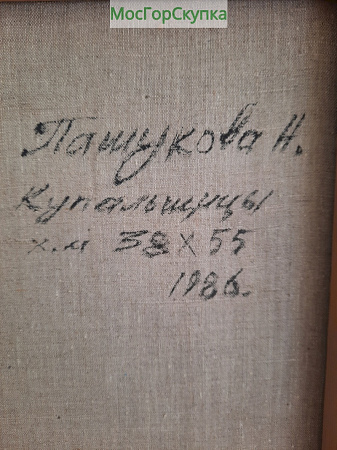 МосГорСкупка
Пашукова Н.
Купальщицы
х.м 38 х 55
1986.